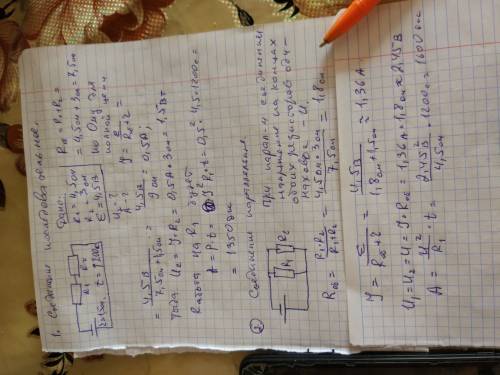 1. Соединение последовательное.
Дано:
R₁ = 4,5 Ом
R₂ = 3 Ом
ε = 4,5 В
U₂ - ?
A - ?
R₁ R₂
t = 1200 с
Rоб = R₁ + R₂ =
= 4,5 Ом + 3 Ом = 7,5 Ом
по Ому для
полной цепи
У = ε / (Rоб + r) =
= 4,5 В / (7,5 Ом + 1,5 Ом) = 4,5 В / 9 Ом = 0,5 А;
Тогда U₂ = У · R₂ = 0,5 А · 3 Ом = 1,5 Вт
Работа на R₁ будет
A = P₁ t = У² R₁ · t = 0,5² · 4,5 · 1200 с =
= 1350 Дж
② Соединение параллельное
R₁ R₂
При парал-м соединении
напряжение на концах
обоих резисторов оди-
наковое - U.
Rоб = R₁ · R₂ / (R₁ + R₂) = 4,5 Ом · 3 Ом / 7,5 Ом = 1,8 Ом
У = ε / (Rоб + r) = 4,5 В / (1,8 Ом + 1,5 Ом) = 1,36 А
U₁ = U₂ = U = У · Rоб = 1,36 А · 1,8 Ом ≈ 2,45 В
A = U² / R₁ · t = 2,45² В / 4,5 Ом · 1200 с = 1600 Дж